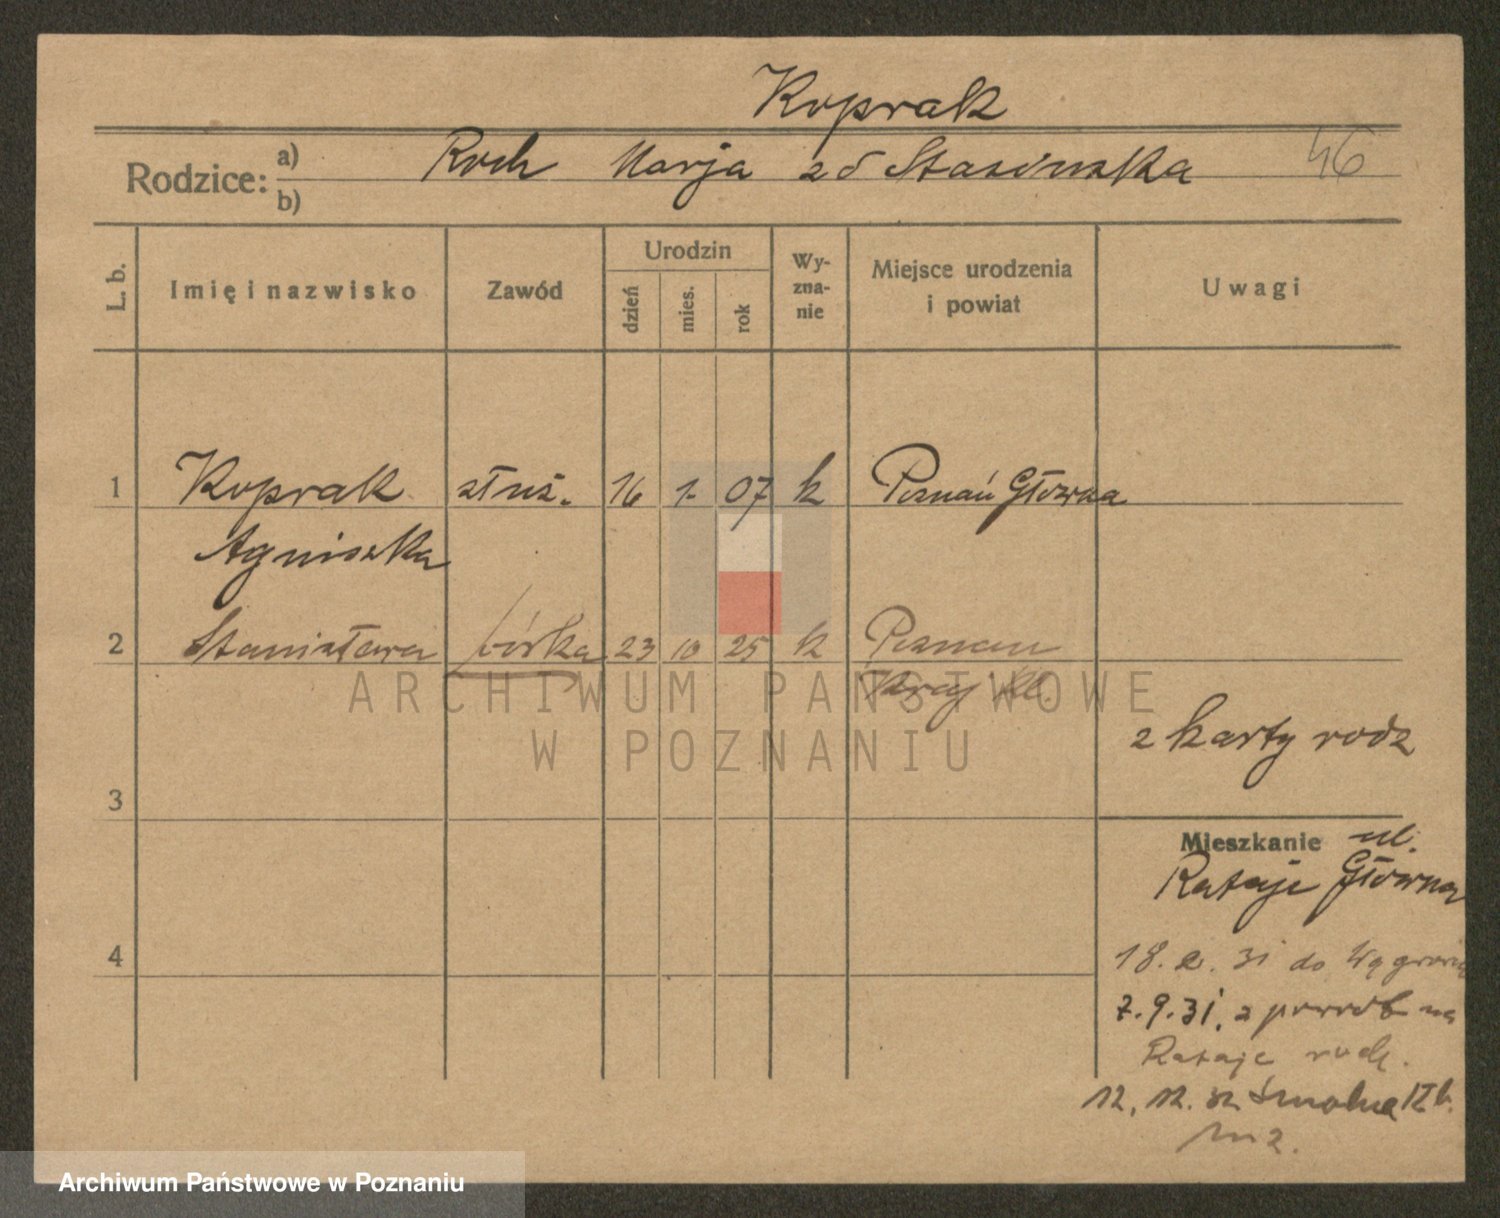 Koprak
Rodzice: a) b) Roch Marja zd Stasinska 46
L. b. Imię i nazwisko Zawód Urodzin dzień mies. rok Wyznanie Miejsce urodzenia i powiat Uwagi
1 Koprak służ. 16 1. 07 k Poznań Główna
Agniszka
2 Stanisława córka 23 10 25 k Poznań
Kraj
z karty rodz
3
Mieszkanie ul.
Rataje Główna
4
18. 2. 31 do
7.9.31. z powrotb na
Rataje rodz.
12. 12. 32 Smolna 17 b.
m 2.
ARCHIWUM PAŃSTWOWE
W POZNANIU
Archiwum Państwowe w Poznaniu